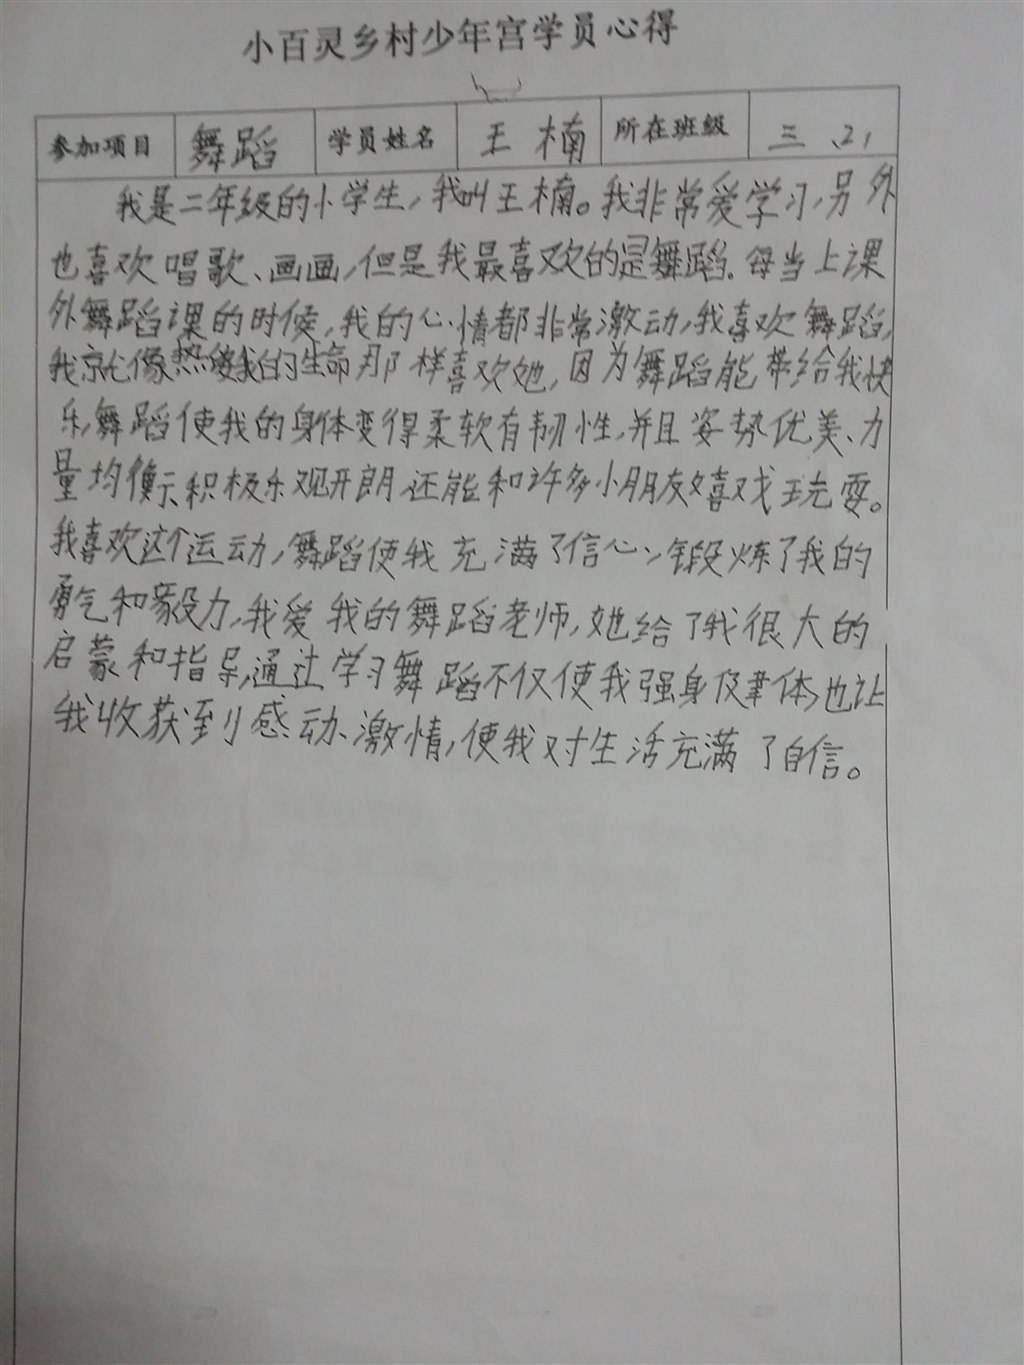 小百灵乡村少年宫学员心得
参加项目 舞蹈 学员姓名 王楠 所在班级 三、2)
我是二年级的小学生,我叫王楠。我非常爱学习,另外
也喜欢唱歌、画画,但是我最喜欢的是舞蹈.每当上课
外舞蹈课的时候,我的心情都非常激动,我喜欢舞蹈,
我就像热爱我的生命那样喜欢她,因为舞蹈能带给我快
乐,舞蹈使我的身体变得柔软有韧性,并且姿势优美、力
量均衡、积极乐观开朗,还能和许多小朋友嬉戏玩耍。
我喜欢这个运动,舞蹈使我充满了信心,锻炼了我的
勇气和毅力,我爱我的舞蹈老师,她给了我很大的
启蒙和指导,通过学习舞蹈不仅使我强身健体,也让
我收获到感动、激情,使我对生活充满了自信。